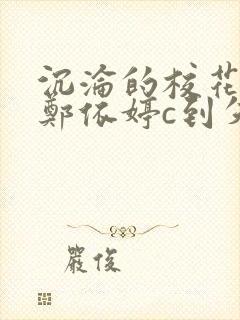 沉淪的校花
鄭依婷c到
嚴俊